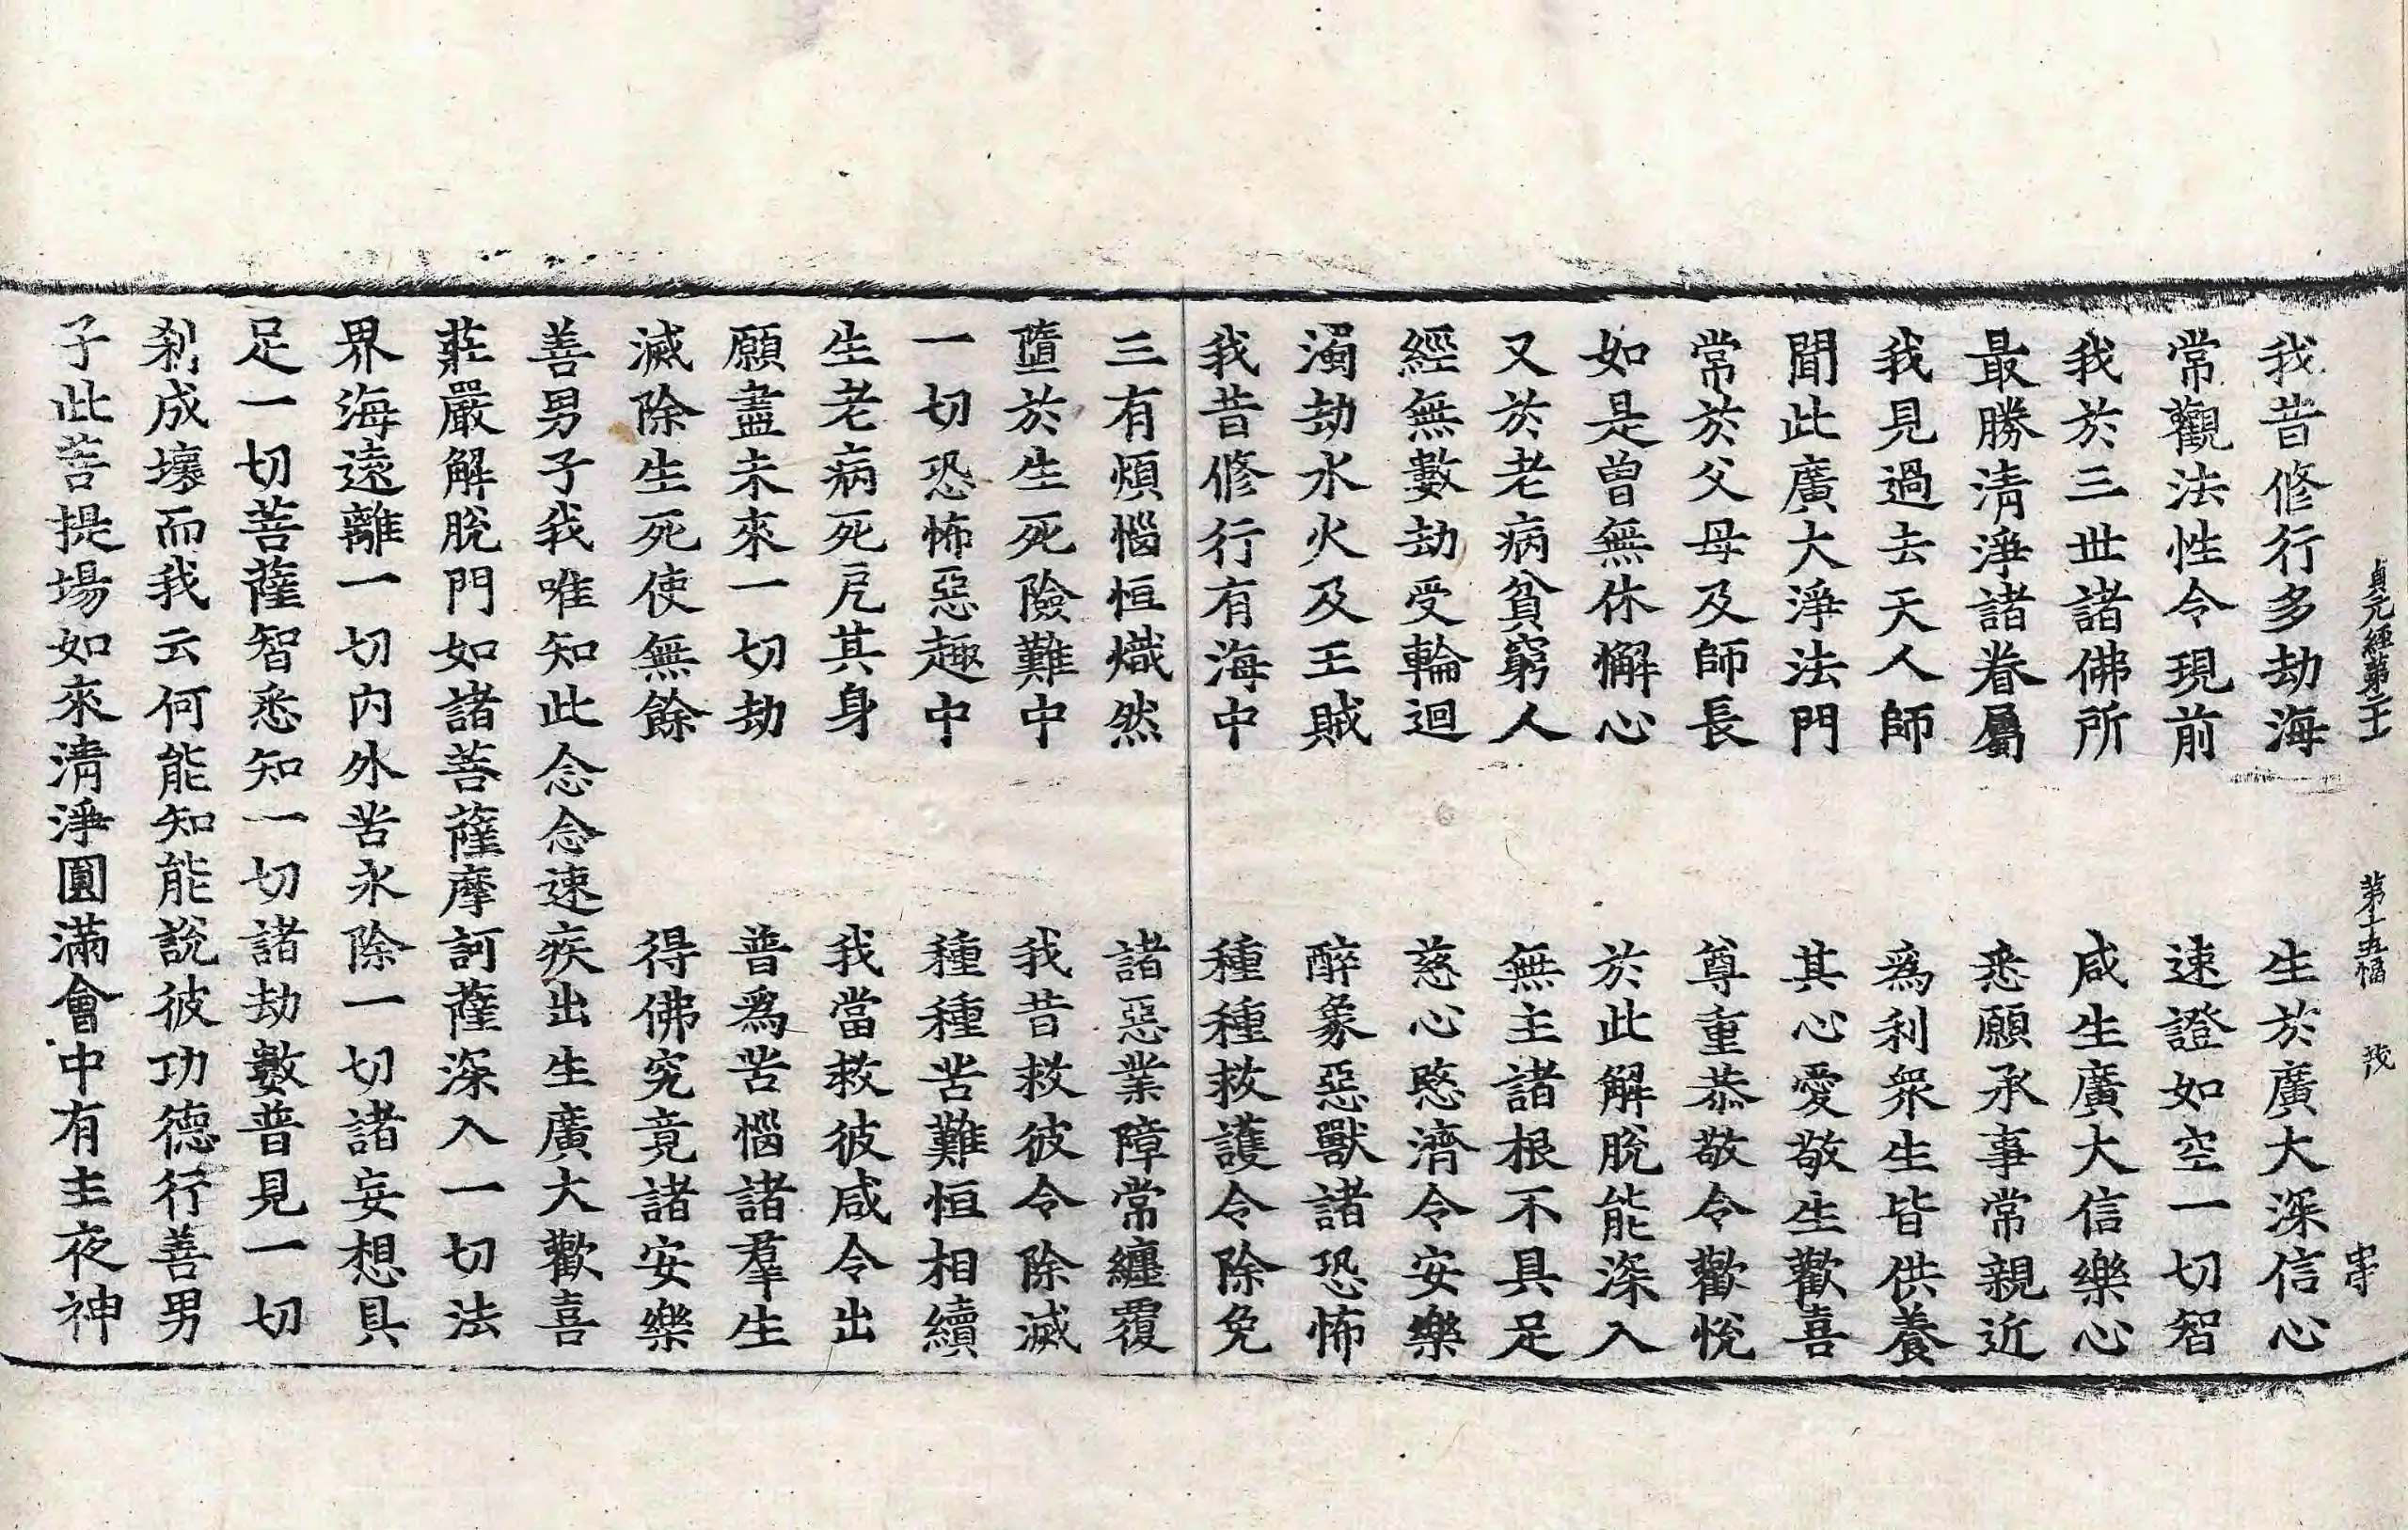 貞元經第二十 第十五幅 茂 串
我昔修行多劫海 生於廣大深信心
常觀法性令現前 速證如空一切智
我於三世諸佛所 咸生廣大信樂心
最勝清淨諸眷屬 悉願承事常親近
我見過去天人師 爲利衆生皆供養
聞此廣大淨法門 其心愛敬生歡喜
常於父母及師長 尊重恭敬令歡悅
如是曾無休懈心 於此解脫能深入
又於老病貧窮人 無主諸根不具足
經無數劫受輪迴 慈心愍濟令安樂
濁劫水火及王賊 醉象惡獸諸恐怖
我昔修行有海中 種種救護令除免
三有煩惱恒熾然 諸惡業障常纏覆
墮於生死險難中 我昔救彼令除滅
一切恐怖惡趣中 種種苦難恒相續
生老病死戹其身 我當救彼咸令出
願盡未來一切劫 普爲苦惱諸羣生
滅除生死使無餘 得佛究竟諸安樂
善男子我唯知此念念速疾出生廣大歡喜
莊嚴解脫門如諸菩薩摩訶薩深入一切法
界海遠離一切內外苦永除一切諸妄想具
足一切菩薩智悉知一切諸劫數普見一切
刹成壞而我云何能知能說彼功德行善男
子此菩提場如來清淨圓滿會中有主夜神